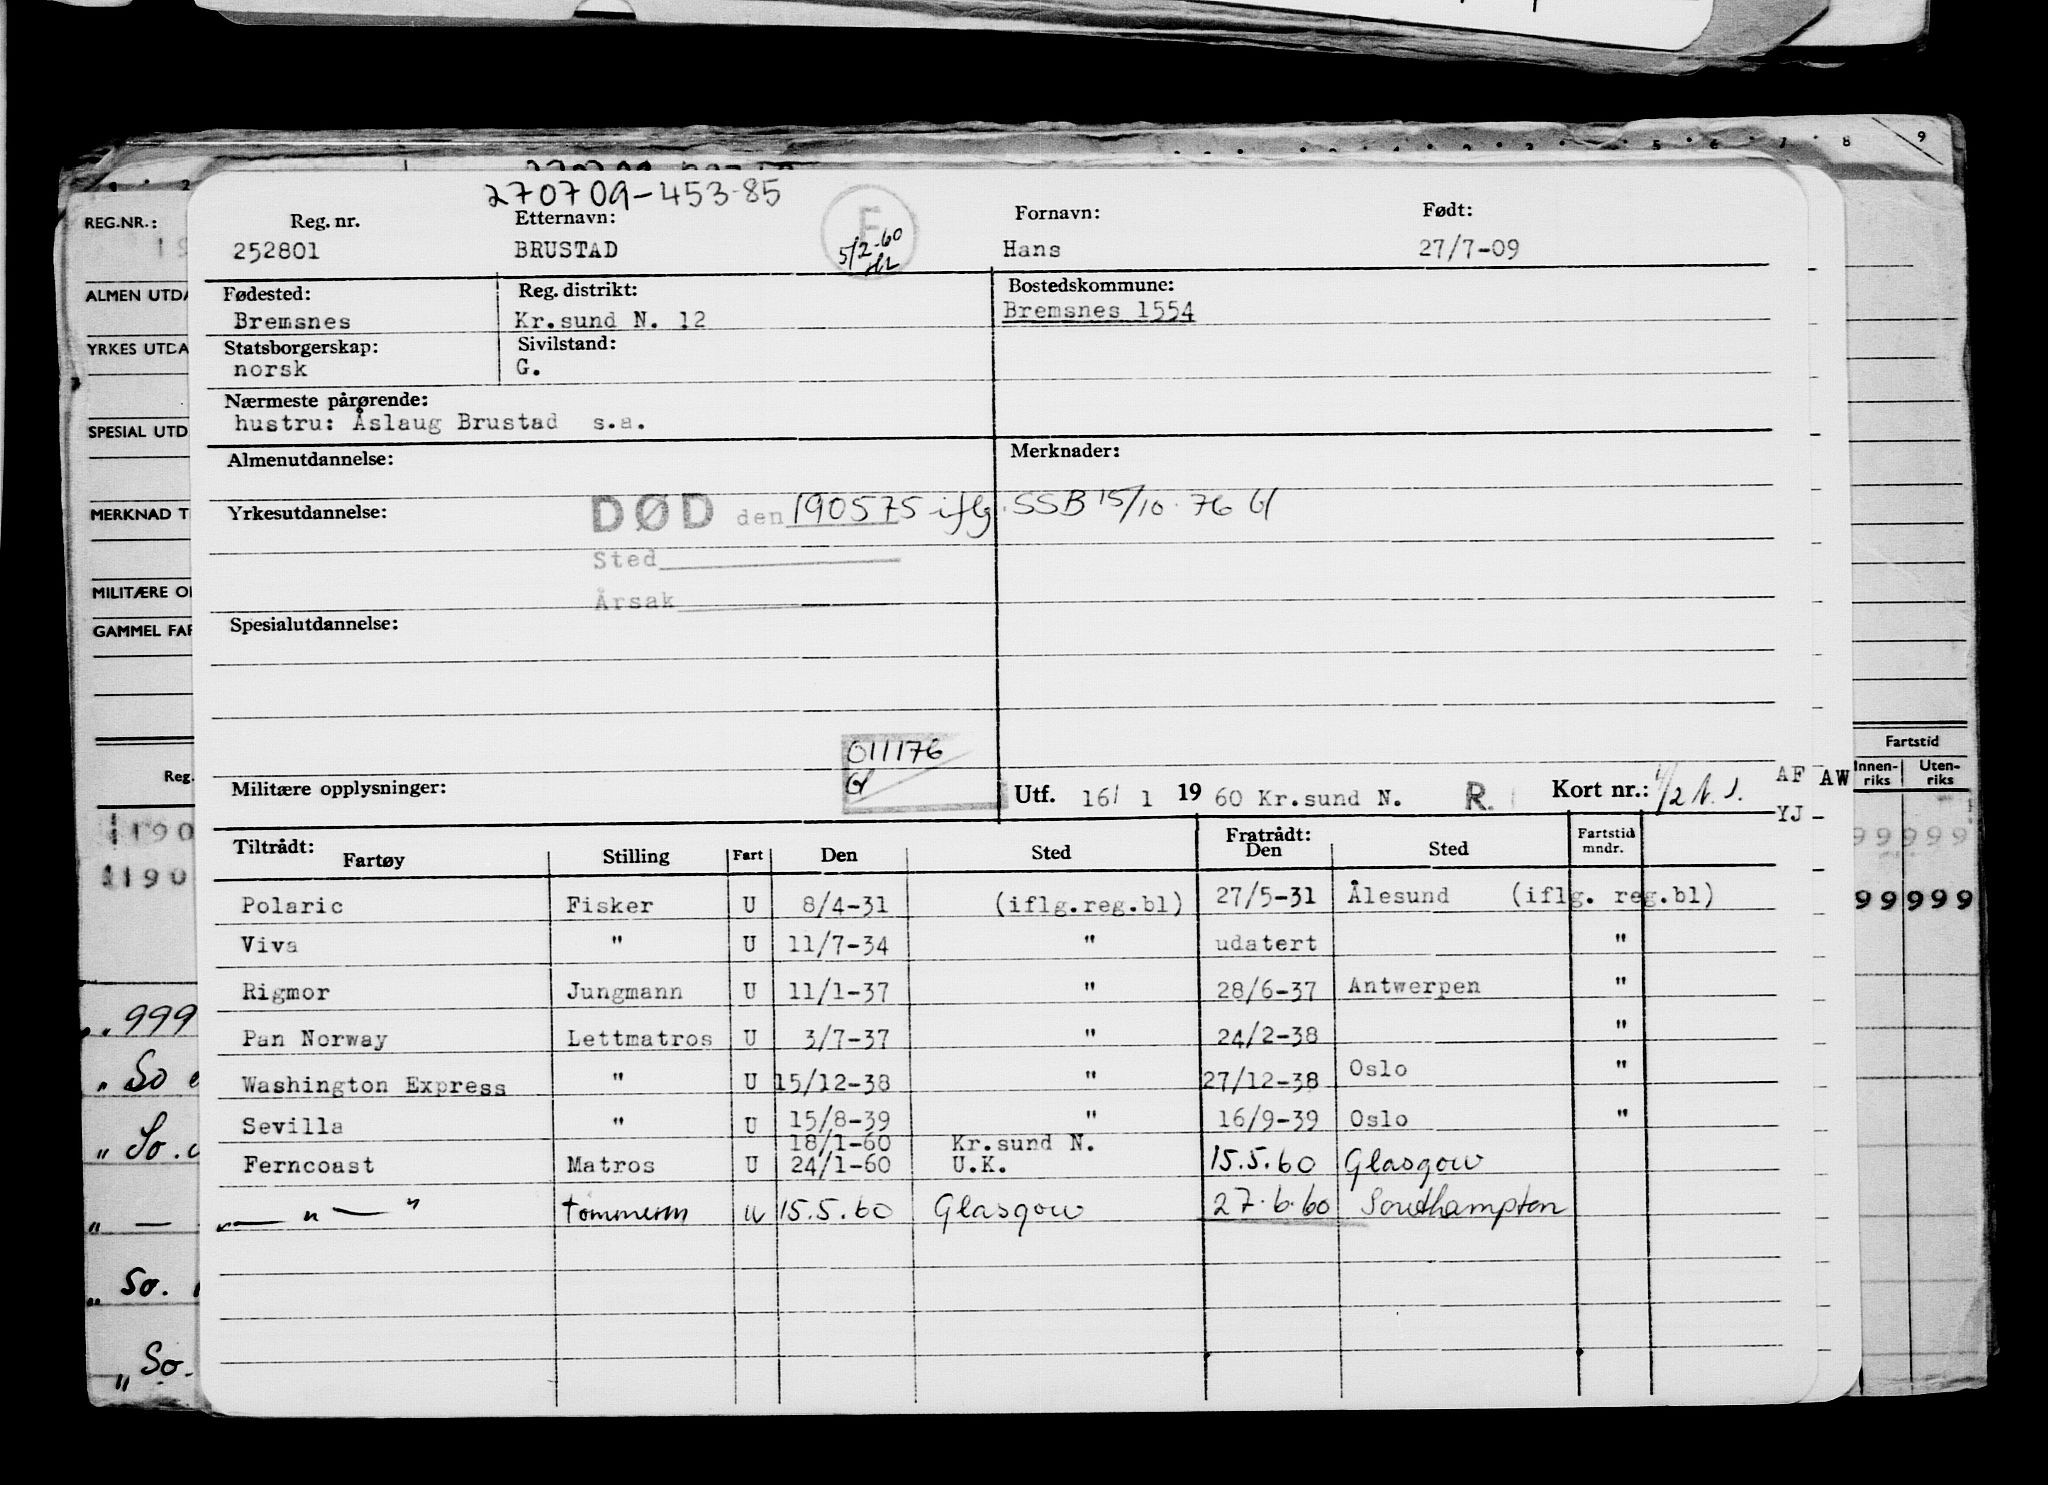 9
8
5 6 7
270709-453-85
REG.NR.: Reg. nr. Etternavn: F Fornavn: Født:
252801 BRUSTAD 5/2-60 Hans 27/7-09
ALMEN UTDA Fødested: Reg. distrikt: Bostedskommune:
Bremsnes Kr.sund N. 12 Bremsnes 1554
YRKES UTDA Statsborgerskap: Sivilstand:
norsk G.
Nærmeste pårørende:
SPESIAL UTD hustru: Åslaug Brustad s.a.
Almenutdannelse: Merknader:
MERKNAD T Yrkesutdannelse: DØD den 190575 iflg. SSB 15/10.76 Gl
Sted
MILITÆRE O Årsak
GAMMEL FAR Spesialutdannelse:
011176
Gl
Fartstid
Innen-riks Uten-riks
Reg. Militære opplysninger: Utf. 16/ 1 1960 Kr.sund N. R. Kort nr.: 1/2 N.J. AF AW
YJ
Tiltrådt: Fratrådt:
Fartøy Stilling Fart Den Sted Den Sted Fartstid mndr.
Polaric Fisker U 8/4-31 (iflg.reg.bl) 27/5-31 Ålesund (iflg. reg.bl)
Viva " U 11/7-34 " udatert "
Rigmor Jungmann U 11/1-37 " 28/6-37 Antwerpen "
Pan Norway Lettmatros U 3/7-37 " 24/2-38 "
Washington Express " U 15/12-38 " 27/12-38 Oslo "
Sevilla " U 15/8-39 " 16/9-39 Oslo "
18/1-60 Kr.sund N.
Ferncoast Matros U 24/1-60 U.K. 15.5.60 Glasgow
" — " — " tømmerm u 15.5.60 Glasgow 27.6.60 Southampton
190
190
99999
99999
" 999
" So
" So.
" —
" So.
" So.